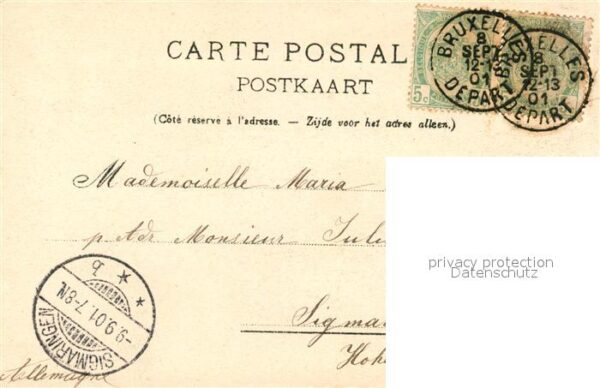 CARTE POSTALE
POSTKAART
(Côté réservé à l'adresse. — Zijde voor het adres alleen.)
5c
BRUXELLES
8
SEPT
12-13
01
DEPART
BRUXELLES
8
SEPT
12-13
01
DEPART
Mademoiselle Maria
p. Adr Monsieur Jul
privacy protection
Datenschutz
SIGMARINGEN
-9.9.01.7-8N.
* b *
Sigma
Hoh
Allemagne